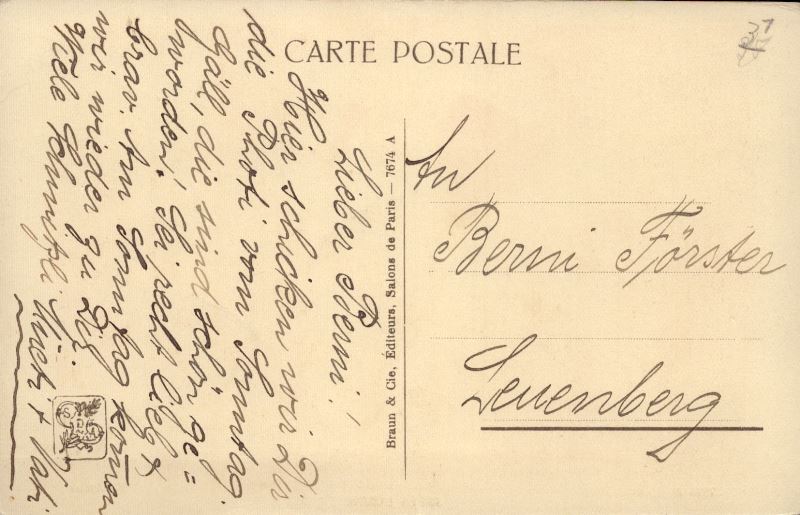 CARTE POSTALE
Lieber Berni!
Hier schicken wir Dir
die Photi vom Sonntag.
Gäll, die sind schön ge=
worden! Sei recht lieb &
brav. Am Sonntag komen
wir wieder zu Dir.
Viele Schmützli Müeti & Vati.
Braun & Cie, Éditeurs, Salons de Paris — 7674 A
An
Berni Förster
Leuenberg